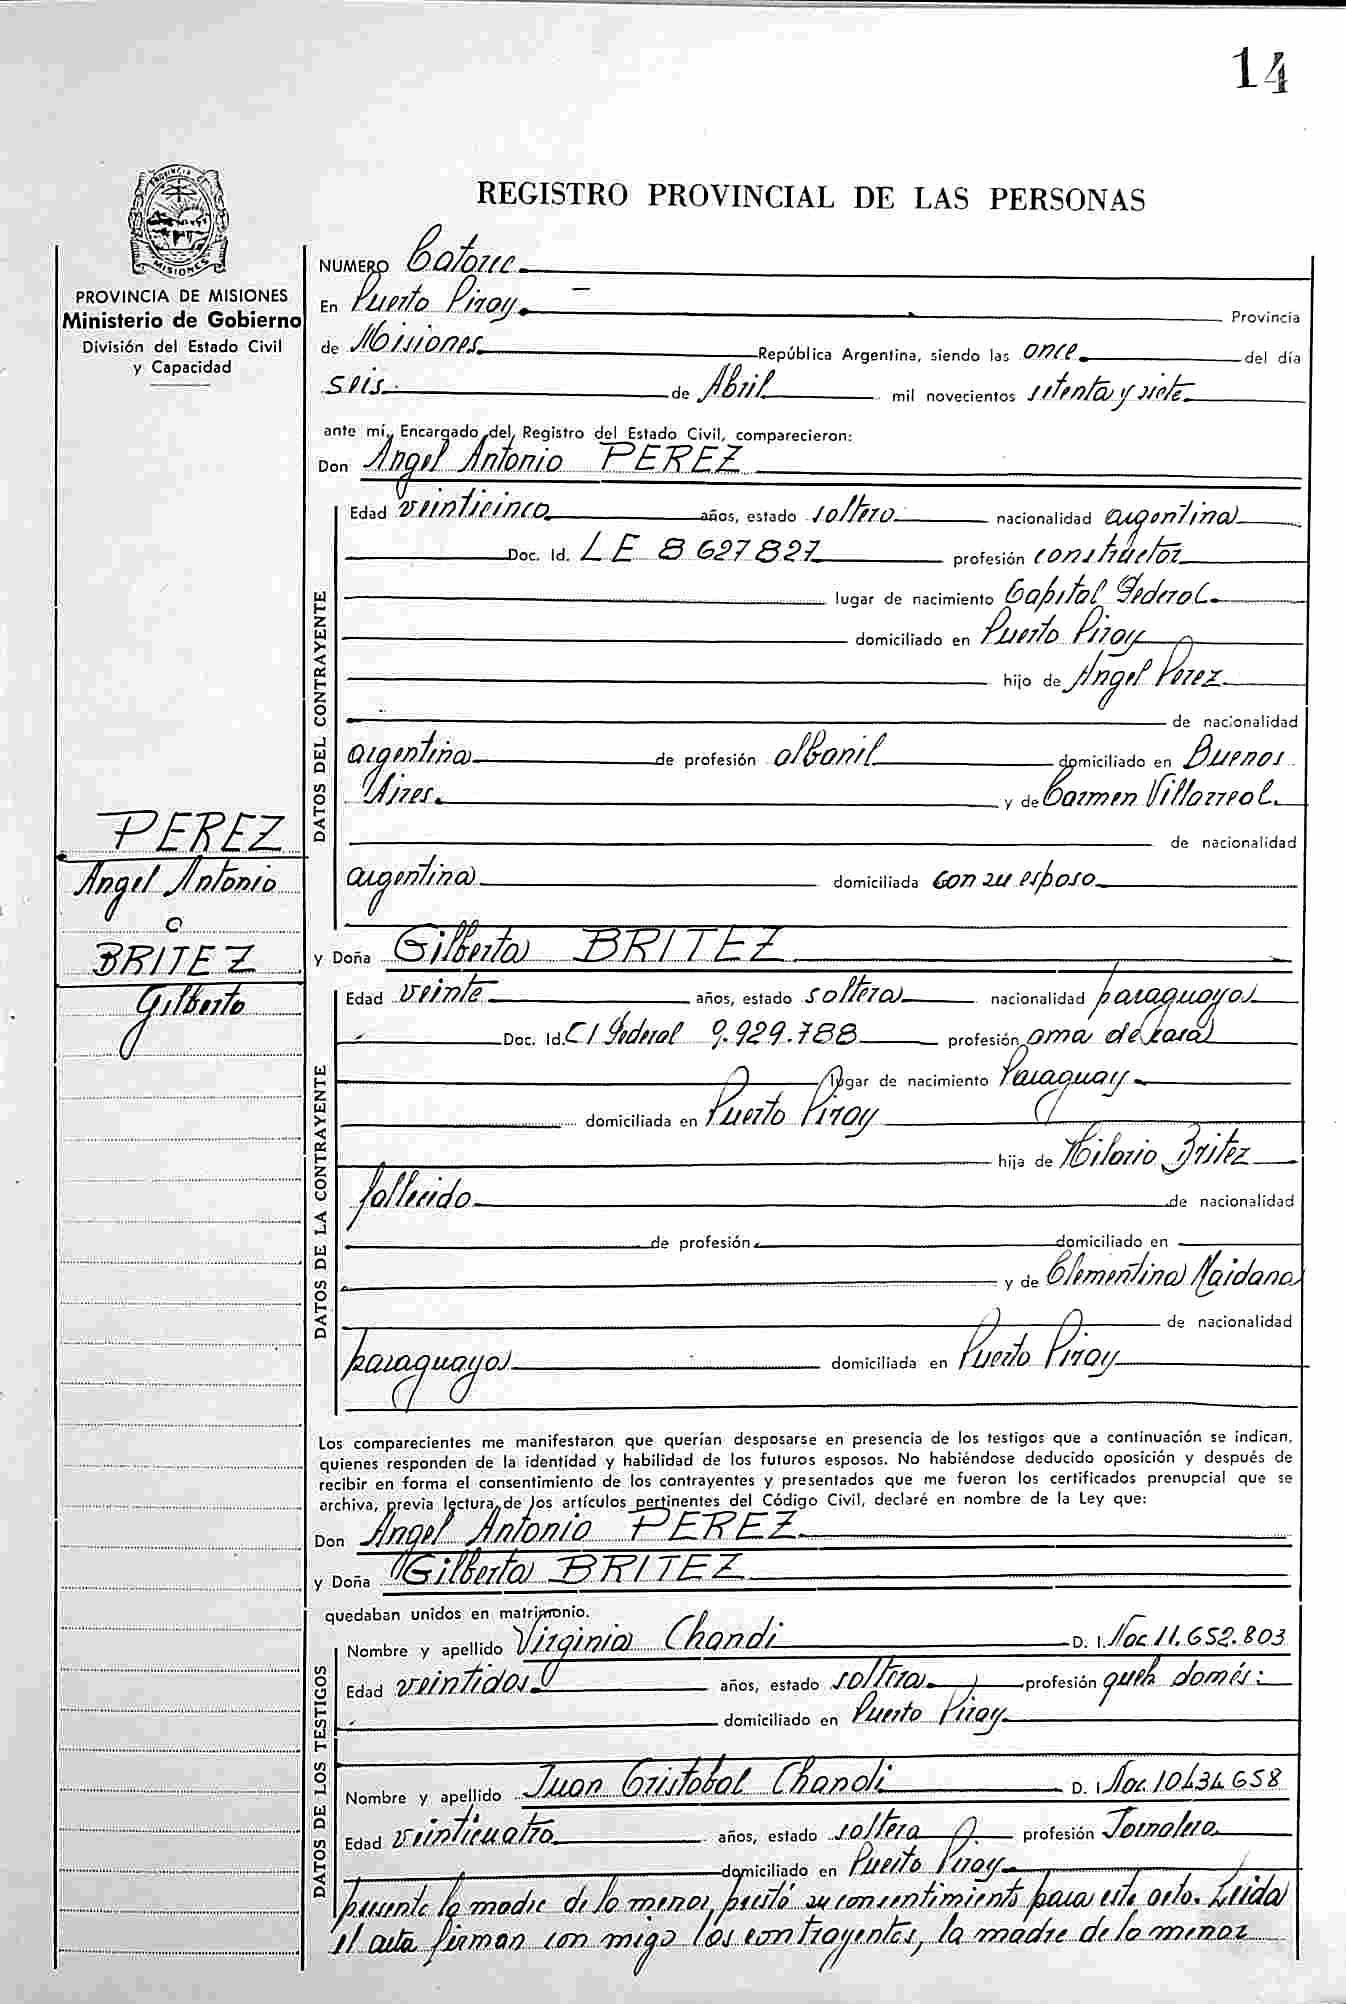 14
PROVINCIA DE
MISIONES
PROVINCIA DE MISIONES
Ministerio de Gobierno
División del Estado Civil
y Capacidad
REGISTRO PROVINCIAL DE LAS PERSONAS
NUMERO Catorce
En Puerto Piray. Provincia
de Misiones República Argentina, siendo las once del día
seis de Abril mil novecientos setenta y siete
ante mí, Encargado del Registro del Estado Civil, comparecieron:
Don Angel Antonio PEREZ
DATOS DEL CONTRAYENTE
Edad veinticinco años, estado soltero nacionalidad argentina
Doc. Id. LE 8627827 profesión constructor
lugar de nacimiento Capital Federal.
domiciliado en Puerto Piray
hijo de Angel Perez
de nacionalidad
argentina de profesión albanil domiciliado en Buenos
Aires. y de Carmen Villarreal.
de nacionalidad
argentina domiciliada con su esposo
PEREZ
Angel Antonio
C
BRITEZ
Gilberta
y Doña Gilberta BRITEZ
DATOS DE LA CONTRAYENTE
Edad veinte años, estado soltera nacionalidad paraguaya
Doc. Id. CI Federal 9.929.788 profesión ama de casa
lugar de nacimiento Paraguay
domiciliada en Puerto Piray
hija de Hilario Britez
fallecido de nacionalidad
de profesión domiciliado en
y de Clementina Maidana
de nacionalidad
paraguaya domiciliada en Puerto Piray
Los comparecientes me manifestaron que querían desposarse en presencia de los testigos que a continuación se indican,
quienes responden de la identidad y habilidad de los futuros esposos. No habiéndose deducido oposición y después de
recibir en forma el consentimiento de los contrayentes y presentados que me fueron los certificados prenupcial que se
archiva, previa lectura de los artículos pertinentes del Código Civil, declaré en nombre de la Ley que:
Don Angel Antonio PEREZ
y Doña Gilberta BRITEZ
quedaban unidos en matrimonio.
DATOS DE LOS TESTIGOS
Nombre y apellido Virginia Chandi D. I. Doc 11.652.803
Edad veintidos años, estado soltera profesión queh domés:
domiciliado en Puerto Piray
Nombre y apellido Juan Cristobal Chandi D. I. Doc. 10434658
Edad veinticuatro años, estado soltero profesión Jornalero
domiciliado en Puerto Piray
presente la madre de la menor, prestó su consentimiento para este acto. Leida
el acta firman con migo los contrayentes, la madre de la menor